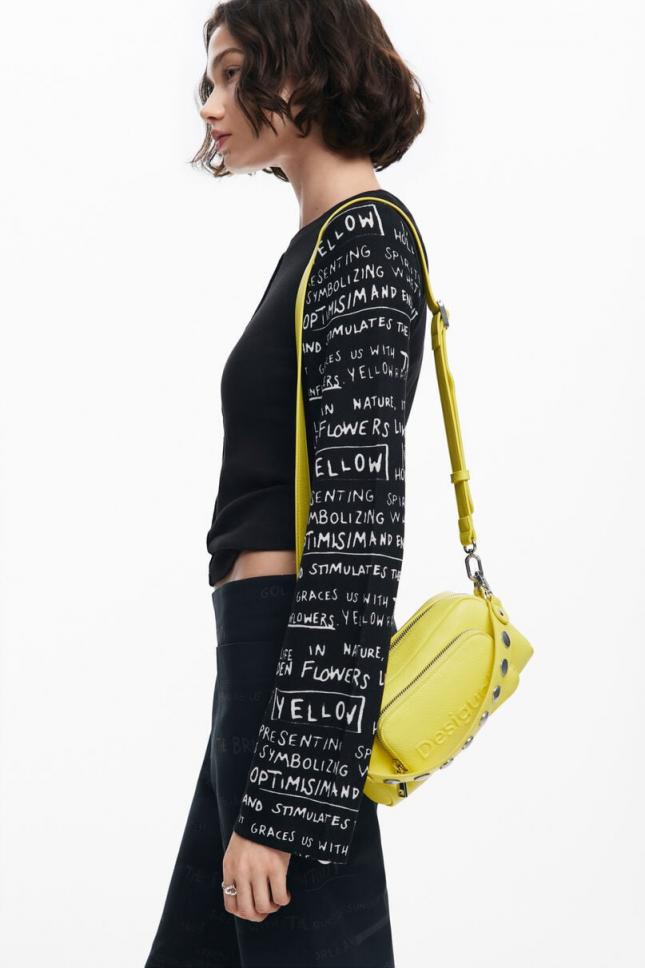 ELLOW
HOL
ESENTING SPIRI
SYMBOLIZING WHI
OPTIMISIMAND EN
AND STIMULATES THE
GRACES US WITH T
ERS. YELLOW
IN NATURE, I
FLOWERS LI
ELLOW
HO
SENTING SPI
MBOLIZING W
TIMISIMAND EN
D STIMULATES THE
GRACES US WITH T
FLOWERS. YELLOW
LIFE IN NATURE,
DEN FLOWERS L
YELLOW
PRESENTING SP
SYMBOLIZING W
OPTIMISIMAND
AND STIMULATES
IT GRACES US WITH
Desigu
GOL
THE BR